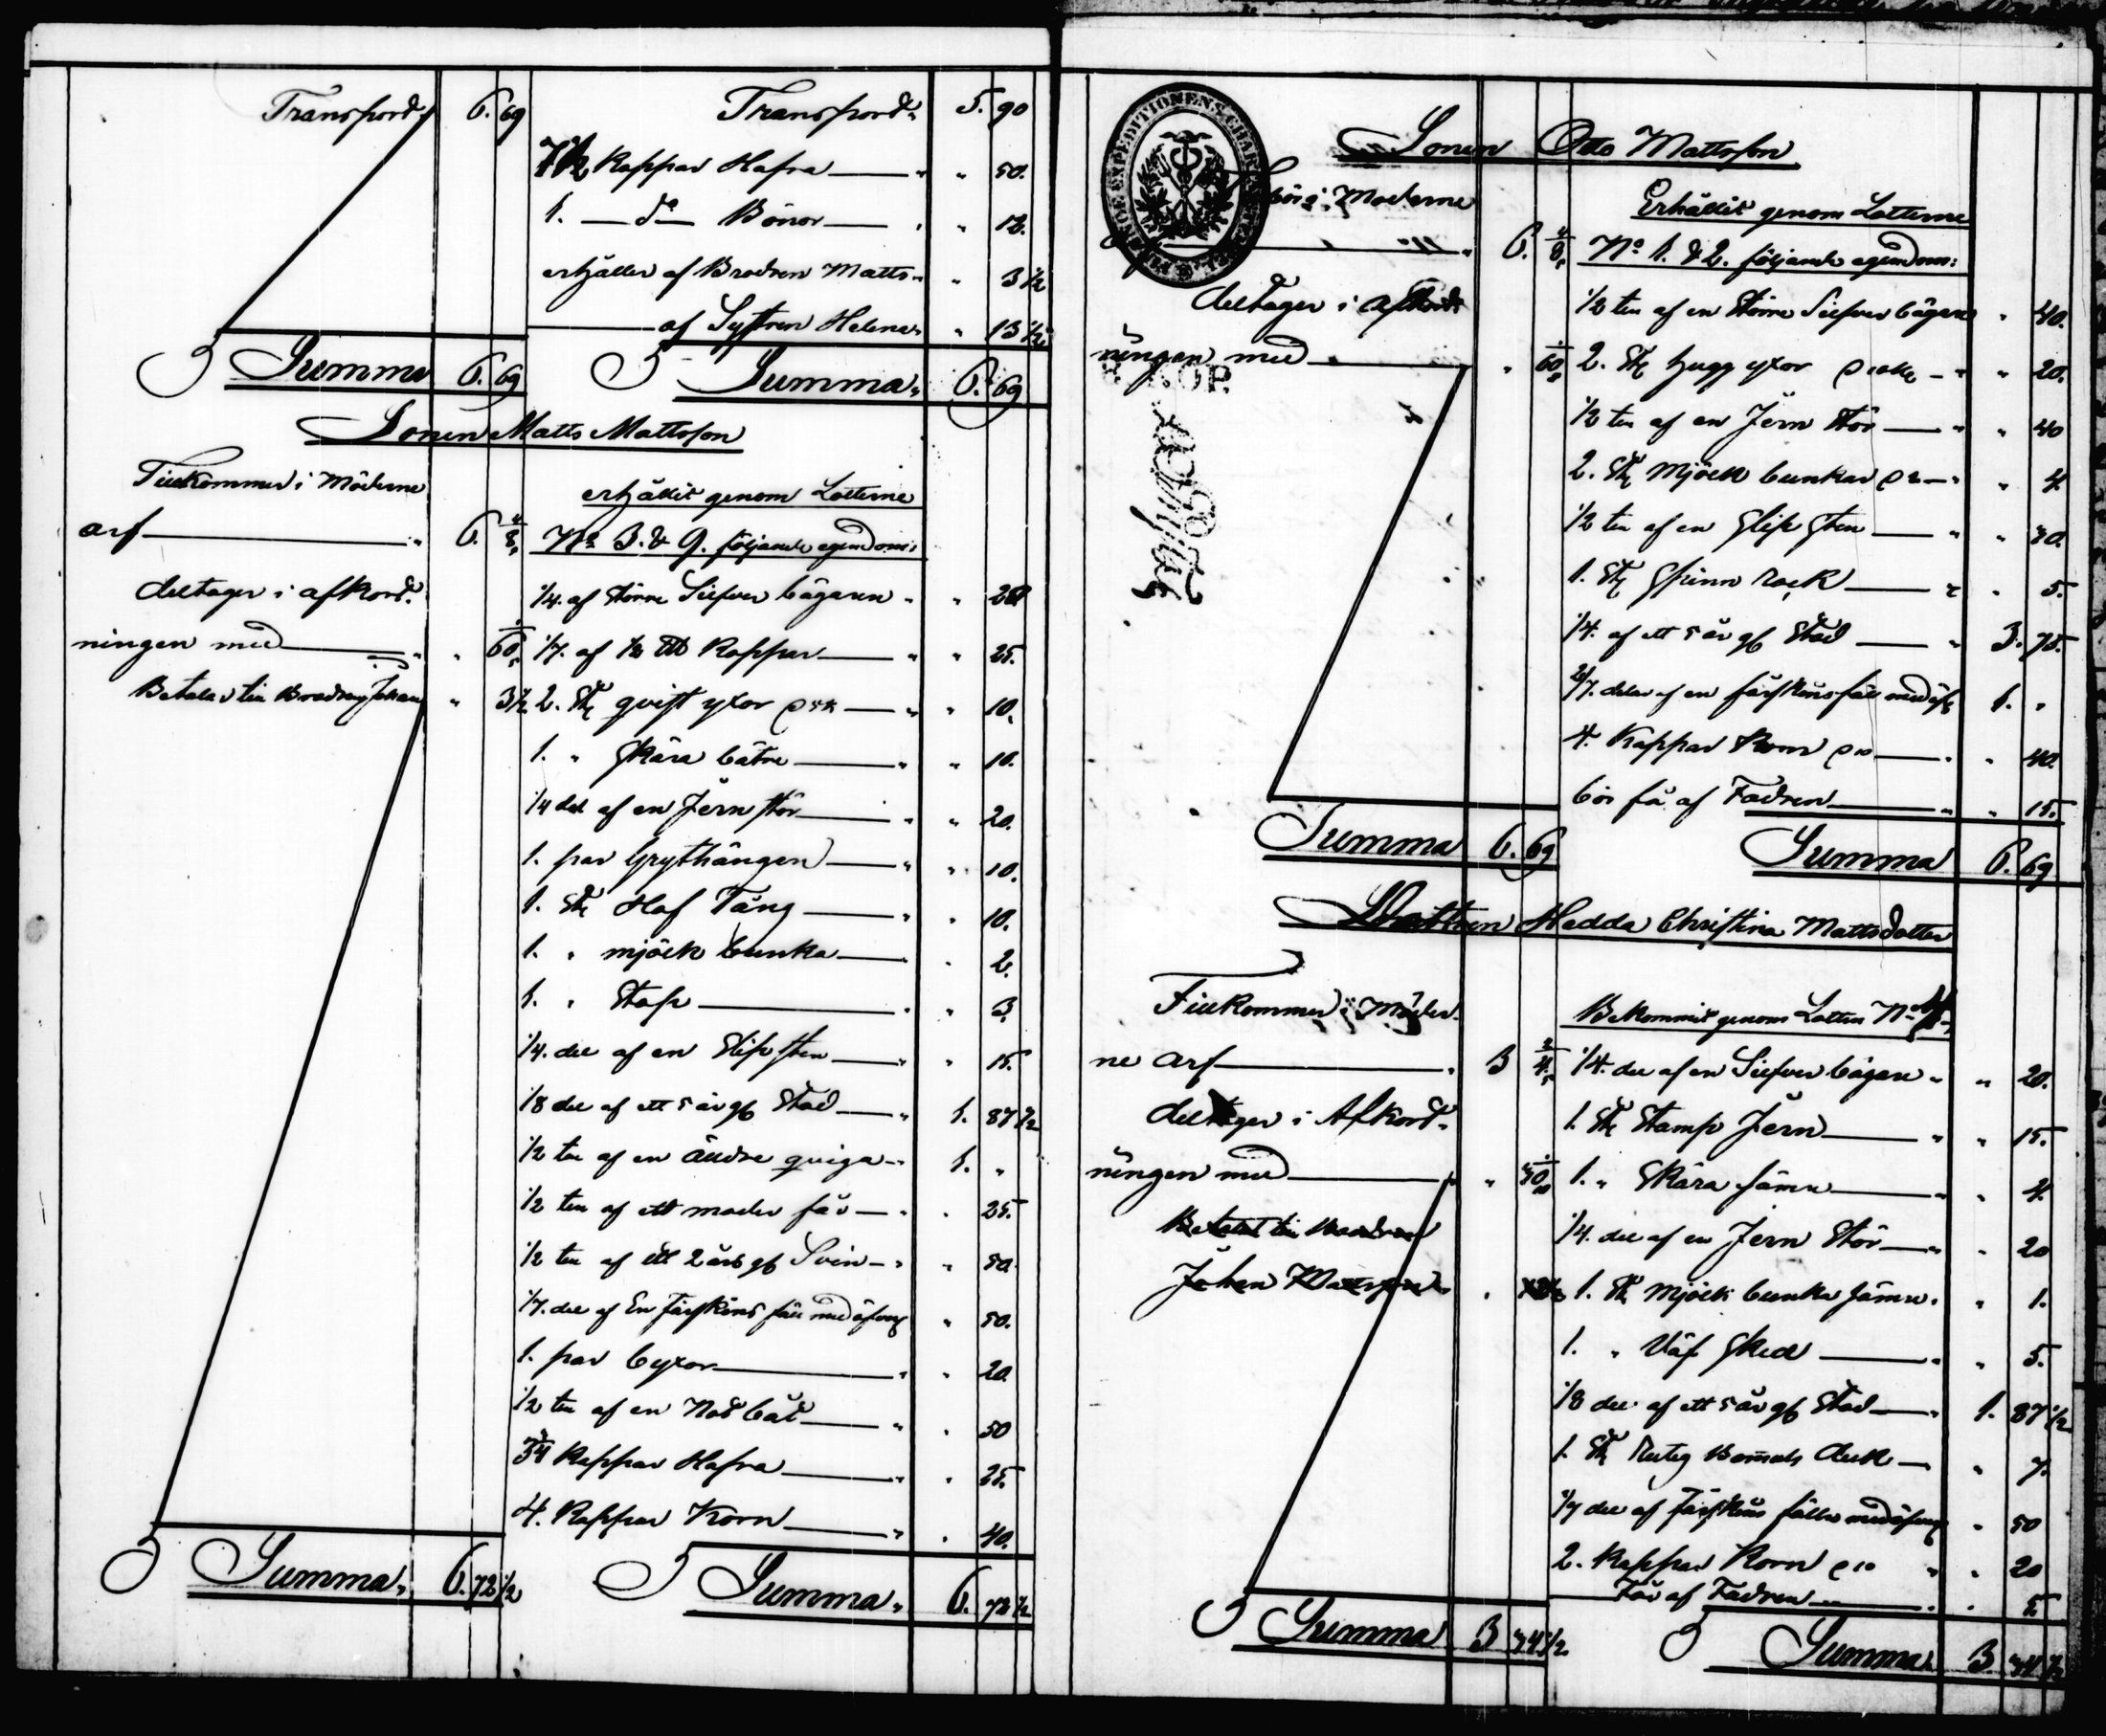 Transport 6. 69
Transport 5. 90
7 1/2 Kappar Hafra " " 50.
1. do Bönor " " 12.
erhåller af Brodren Matts " " 3 1/2
af Systren Helena " " 13 1/2
Summa 6. 69
Summa 6. 69
Sonen Matts Mattsson
Tillkommer i Möderne
arf 6. 8
deltager i afkort-
ningen med " 60
Betalar till Brodren Johan " 3 1/2
Summa 6. 72 1/2
erhållit genom Lotterne
No 3. & 9. följande egendom:
1/4. af större Silfver bägaren " " 20
1/7. af 1/2 Kappar " " 25.
2. St qvist yxor " " 10.
1. " Skära bätre " " 10.
1/4 del af en Jern stör " " 20.
1. par Grythängen " " 10.
1. St Hof Tång " " 10.
1. " mjölk bunka " " 2.
1. " Stop " " 3.
1/4. del af en Slip sten " " 15.
1/8 del af ett 5 år gl Stod " 1. 87 1/2
1/2 ten af en äldre qviga " 1. "
1/2 ten af ett moder får " " 25.
1/2 ten af ett 2 års gl Svin " " 50.
1/7. del af En fårskins fäll med " 50.
1. par byxor " " 20.
1/2 ten af en Not båt " " 50
Kappar Hafra " " 25.
4. Kappar Korn " " 40.
Summa 6. 72 1/2
EXPEDITIONENS CHARTA
KOP.
Sonen Otto Mattsson
i Möderne
6. 8
deltager i afkort-
ningen med " 60
Summa 6. 69
Erhållit genom Lotterne
No 1. & 2. följande egendom:
1/2 ten af en större Silfver bägare " 40.
2. St hugg yxor " " 20.
1/2 ten af en Jern stör " " 40
2. St Mjölk bunkar " " 4.
1/2 ten af en Slip sten " " 30.
1. St Spinn rock " " 5.
1/4. af ett 5 år gl Stod " 3. 75.
2/7. delar af en fårskinsfäll med 1. "
4. Kappar Korn " " 40.
bör få af Fadren " " 15.
Summa 6. 69
Dottren Hedda Christina Mattsdotter
Tillkommer i Möder-
ne arf 3 4
deltager i Afkort-
ningen med " 30
Betalat till Brodren
Johan Mattsson
Summa 3 34 1/2
Bekommit genom Lotten No
1/4. del af en Silfver bägare " " 20.
1. St Stamp Jern " " 15.
1. " Skära sämre " " 4.
1/4. del af en Jern Stör " " 20
1. St Mjölk bunka sämre " " 1.
1. " Väf Sked " " 5.
1/8 del af ett 5 år gl Stod " 1. 87 1/2
1. St Rutig Bomuls duk " 7.
1/7 del af fårskins fällar med " 50
2. Kappar Korn " " 20
Får af Fadren " " 5
Summa 3 34 1/2